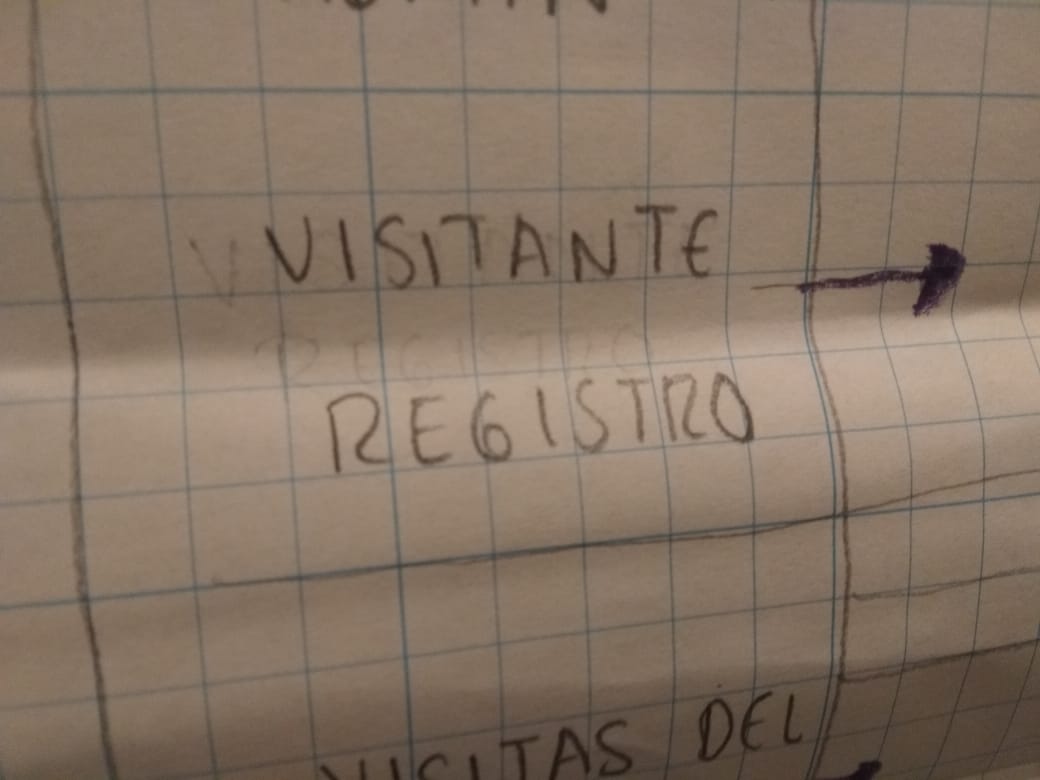 VISITANTE
REGISTRO
VISITAS DEL